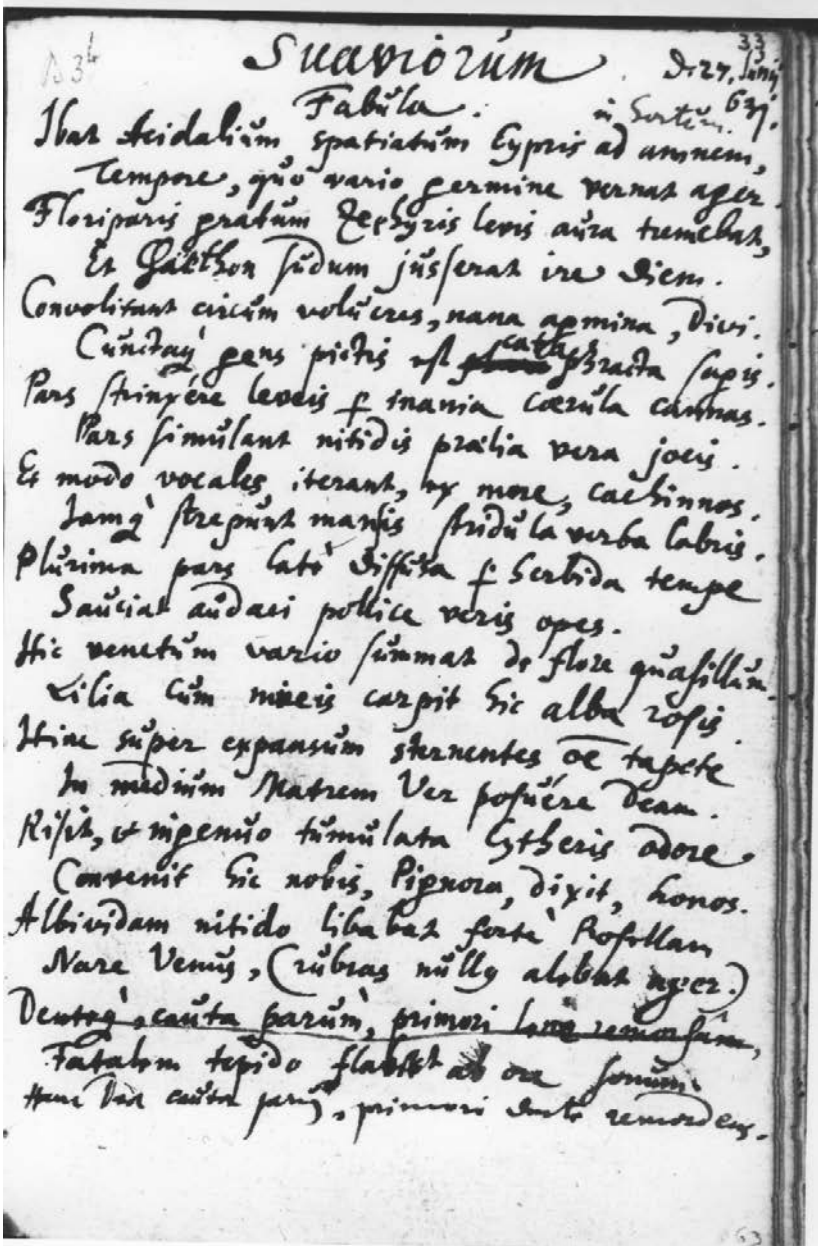 33
Suaviorum
D. 27. Junij
Fabula.
631.
Ibat Acidalium spatiatum Cypris ad amnem,
Tempore, quo vario germine vernat ager.
Floriparis pratum Zephyris levis aura tremebat,
Et Phaethon sudum jusserat ire diem.
Convolitant circum volucres, nana agmina, Divi.
Cunctaq; gens pictis est cataphracta sagis.
Pars strinxére leveis p inania cærula cannas.
Pars simulant nitidis prælia vera jocis.
Et modo vocales iterant, ex more, cachinnos.
Jamq; strepunt mansis stridula verba labris.
Plurima pars latè diffusa p herbida tempe
Sauciat audaci pollice veris opes.
Hic venetum vario summat de flore quasillum.
Lilia cum niveis carpit hic alba rosis.
Hinc super expansum sternentes oē tapete
In medium Matrem Ver posuére Deam.
Risit, et ingenuo tumulata Cytheris odore
Convenit hic nobis, Pignora, dixit, honos.
Albividam nitido libabat fortè Rosillam
Nare Venus, (rubras nullq alebat ager.)
Denteq;, cauta parùm, primori
Fatalem tepido ab ore sonum.
Hanc Dea cauta parum, primori dente remordens.
63